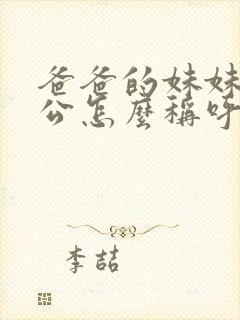 爸爸的妹妹
公怎麼稱呼
李喆